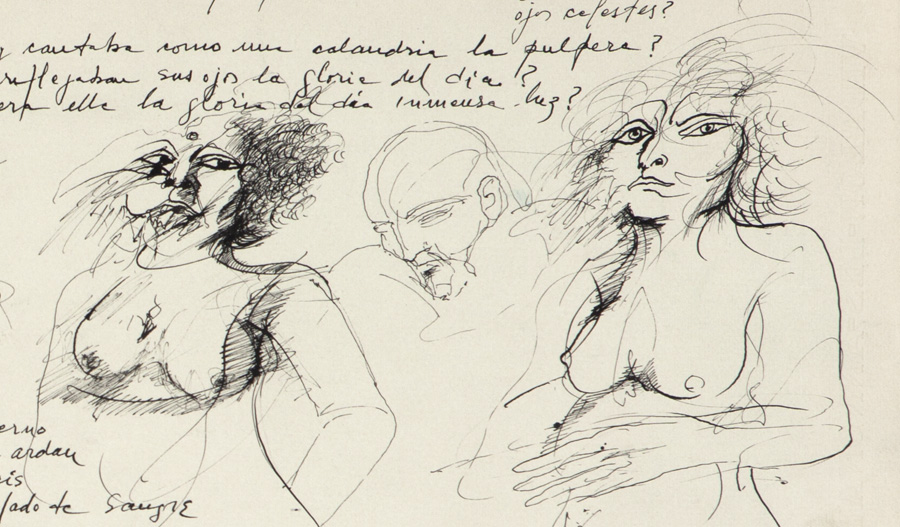 ojos celestes?
y cantaba como una calandria la pulpera?
reflejaban sus ojos la gloria del día?
era ella la gloria del día inmensa luz?
ardan
de Sangre